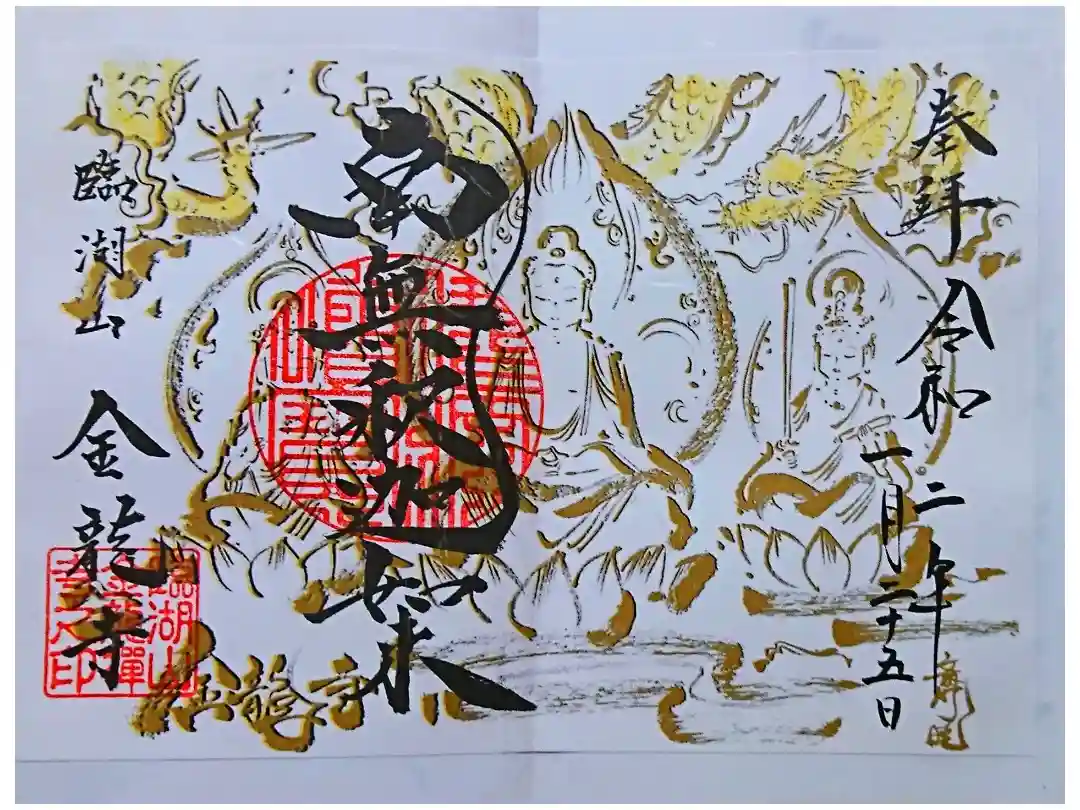 奉拝 令和二年
一月二十五日
南無釈迦如来
臨湖山 金龍寺
臨湖山
金龍禪
寺之印